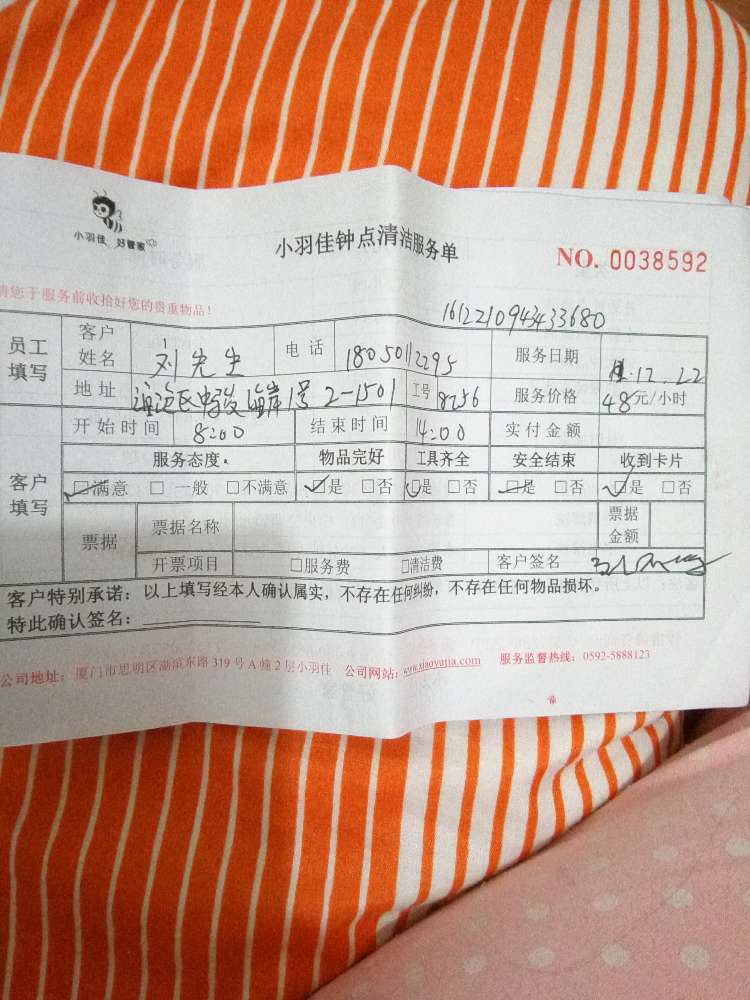 小羽佳 好管家
小羽佳钟点清洁服务单
NO. 0038592
请您于服务前收拾好您的贵重物品!
161221094343680
员工填写 客户姓名 刘先生 电话 18050112295 服务日期 12.22
地址 1号 2-1501 工号 8256 服务价格 48元/小时
客户填写 开始时间 8:00 结束时间 14:00 实付金额
服务态度: 物品完好 工具齐全 安全结束 收到卡片
☑满意 □一般 □不满意 ☑是 □否 ☑是 □否 ☑是 □否 ☑是 □否
票据 票据名称 票据金额
开票项目 □服务费 □清洁费 客户签名
客户特别承诺:以上填写经本人确认属实,不存在任何纠纷,不存在任何物品损坏。
特此确认签名:
公司地址:厦门市思明区湖滨东路319号A幢2层小羽佳 公司网站:www.xiaoyujia.com 服务监督热线:0592-5888123